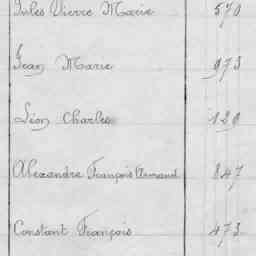 Jules Pierre Marie 570
Jean Marie 973
Léon Charles 129
Alexandre François Armand 847
Constant François 473